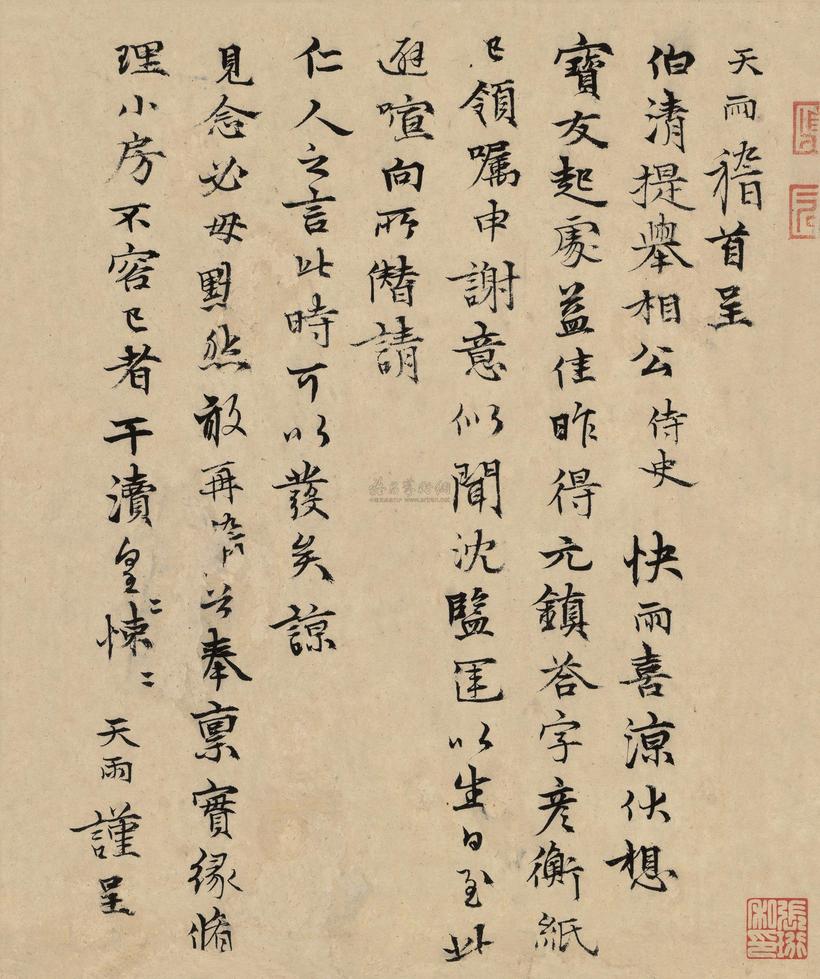 天雨稽首呈
伯清提舉相公侍史 快雨喜涼伏想
寶友起處益佳昨得元鎮荅字彦衡紙
已領囑申謝意似聞沈鹽運以生日至此
避喧向所僣請
仁人之言此時可以發矣諒
見念必毋默然敢再稽首奉稟實緣脩
理小房不容已者干瀆皇〻悚〻
天雨謹呈